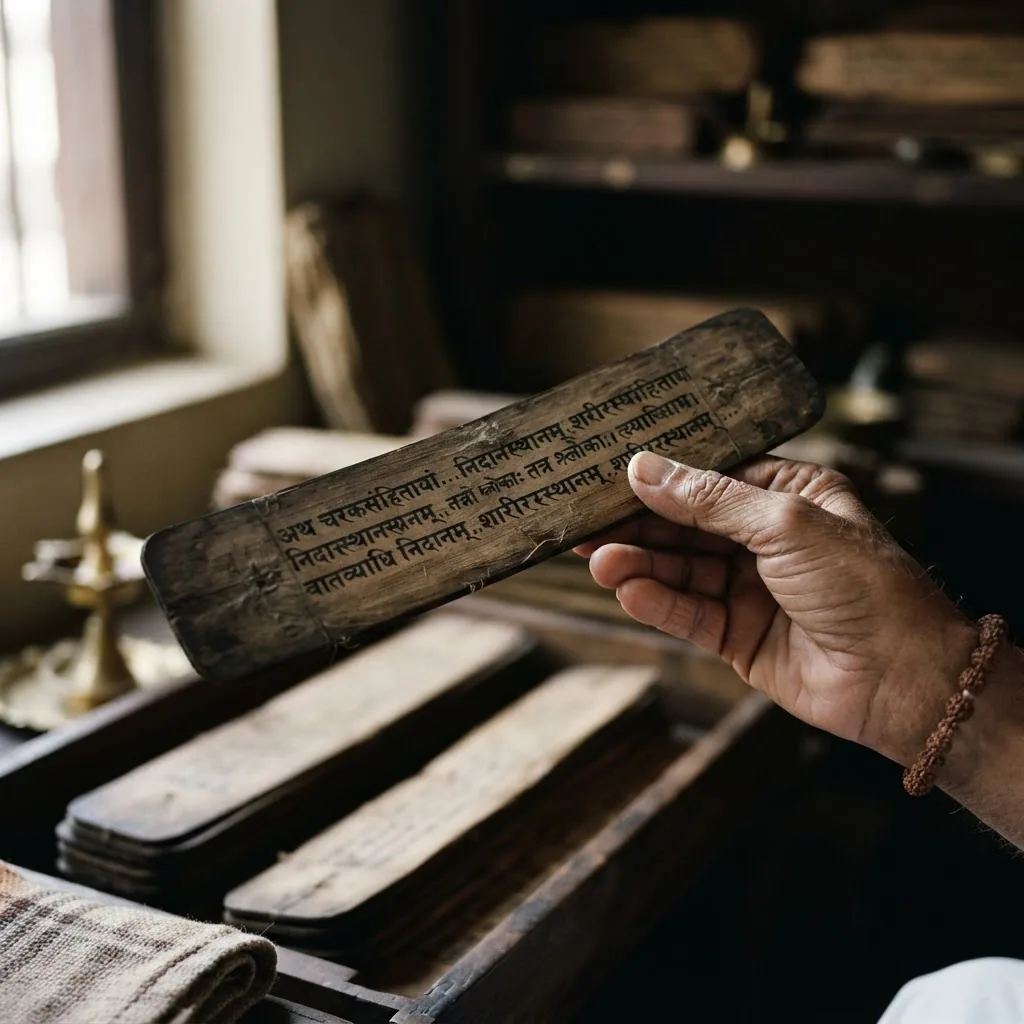 अथ चरकसंहितायां...निदानस्थानम्, शारीरस्थंहितायां
निदास्थानस्त्नम्, तत्रा श्लोकाः तत्र श्लोकाः। त्याष्धिाम।
वातव्याधि निदानम्, शारीररस्थानम्, शारीररस्थानम्...